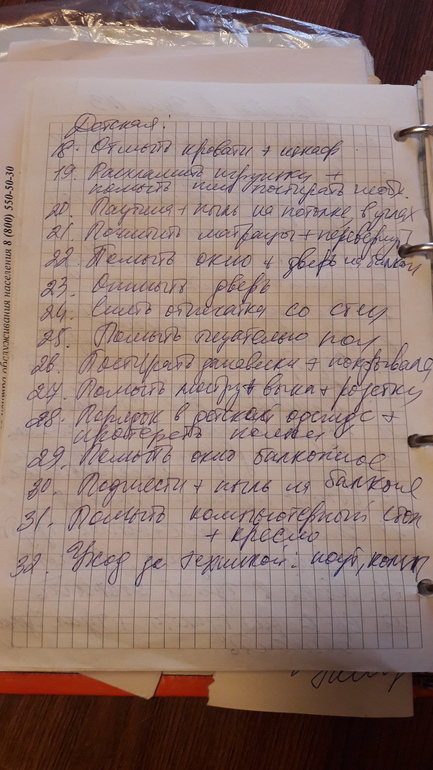 Детская:
18. Отмыть кровати + шкаф
19. Расхламить игрушки +
помыть или постирать необх.
20. Паутина + пыль на потолке в углах
21. Почистить матрацы + перевернуть
22. Помыть окно + дверь на балкон
23. Отмыть дверь
24. Снять отпечатки со стен
25. Помыть тщательно пол
26. Постирать занавески + покрывала
27. Помыть люстру + выкл + розетки
28. Порядок в детской одежде +
протереть полки
29. Помыть окно балконное
30. Подмести + пыль на балконе
31. Помыть компьютерный стол
+ кресло
32. Уход за техникой: ноут,
служивания населения 8 (800) 550-50-30